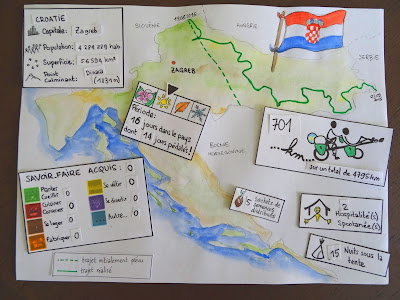 CROATIE
Capitale: Zagreb
Population: 4 284 889 hab
Superficie: 56 594 km²
Point culminant: Dinara (1831m)
SLOVÉNIE
HONGRIE
SERBIE
ZAGREB
BOSNIE HERZÉGOVINE
Période:
16 jours dans le pays
dont 14 jours pédalés!
701
...km...
sur un total de 4795km
SAVOIR-FAIRE ACQUIS: 0
Planter 0
Cueillir
Cuisiner 0
Conserver
Se loger 0
Fabriquer 0
Se vêtir 0
Se divertir 0
Autre... 0
5 sachets de semences distribués
2 Hospitalité(s) spontanée(s)
15 Nuits sous la tente
trajet initialement prévu
trajet réalisé